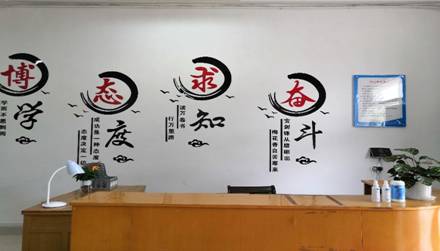 博学
学而不思则罔
态度
成功是一种态度
态度决定一
求知
读万卷书
行万里路
奋斗
宝剑锋从磨砺出
梅花香自苦寒来